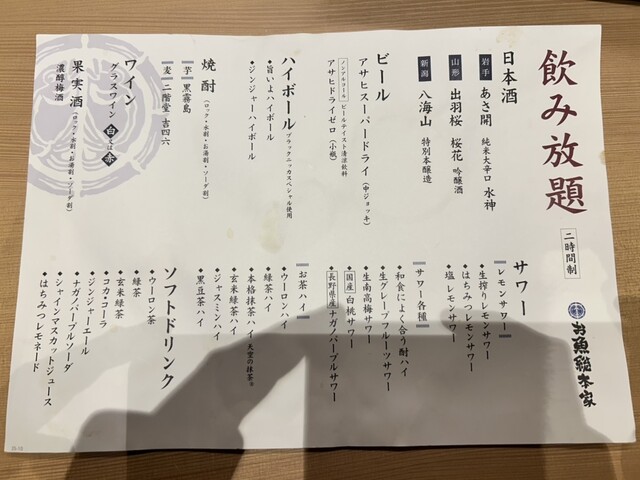 飲み放題
二時間制
お魚総本家
日本酒
岩手 あさ開 純米大辛口 水神
山形 出羽桜 桜花 吟醸酒
新潟 八海山 特別本醸造
ビール
アサヒスーパードライ(中ジョッキ)
ノンアルコール ビールテイスト清涼飲料
アサヒドライゼロ(小瓶)
ハイボール ブラックニッカスペシャル使用
・旨いよハイボール
・ジンジャーハイボール
焼酎(ロック・水割・お湯割・ソーダ割)
芋 黒霧島
麦 二階堂 吉四六
ワイン
グラスワイン 白 又は 赤
果実酒(ロック・水割・お湯割・ソーダ割)
濃醇梅酒
サワー
レモンサワー
・生搾りレモンサワー
・はちみつレモンサワー
・塩レモンサワー
サワー各種
・和食によく合う酎ハイ
・生グレープフルーツサワー
・生南高梅サワー
・国産 白桃サワー
・長野県産 ナガノパープルサワー
お茶ハイ
・ウーロンハイ
・緑茶ハイ
・本格抹茶ハイ 天空の抹茶
・玄米緑茶ハイ
・ジャスミンハイ
・黒豆茶ハイ
ソフトドリンク
・ウーロン茶
・緑茶
・玄米緑茶
・コカ・コーラ
・ジンジャーエール
・ナガノパープルソーダ
・シャインマスカットジュース
・はちみつレモネード